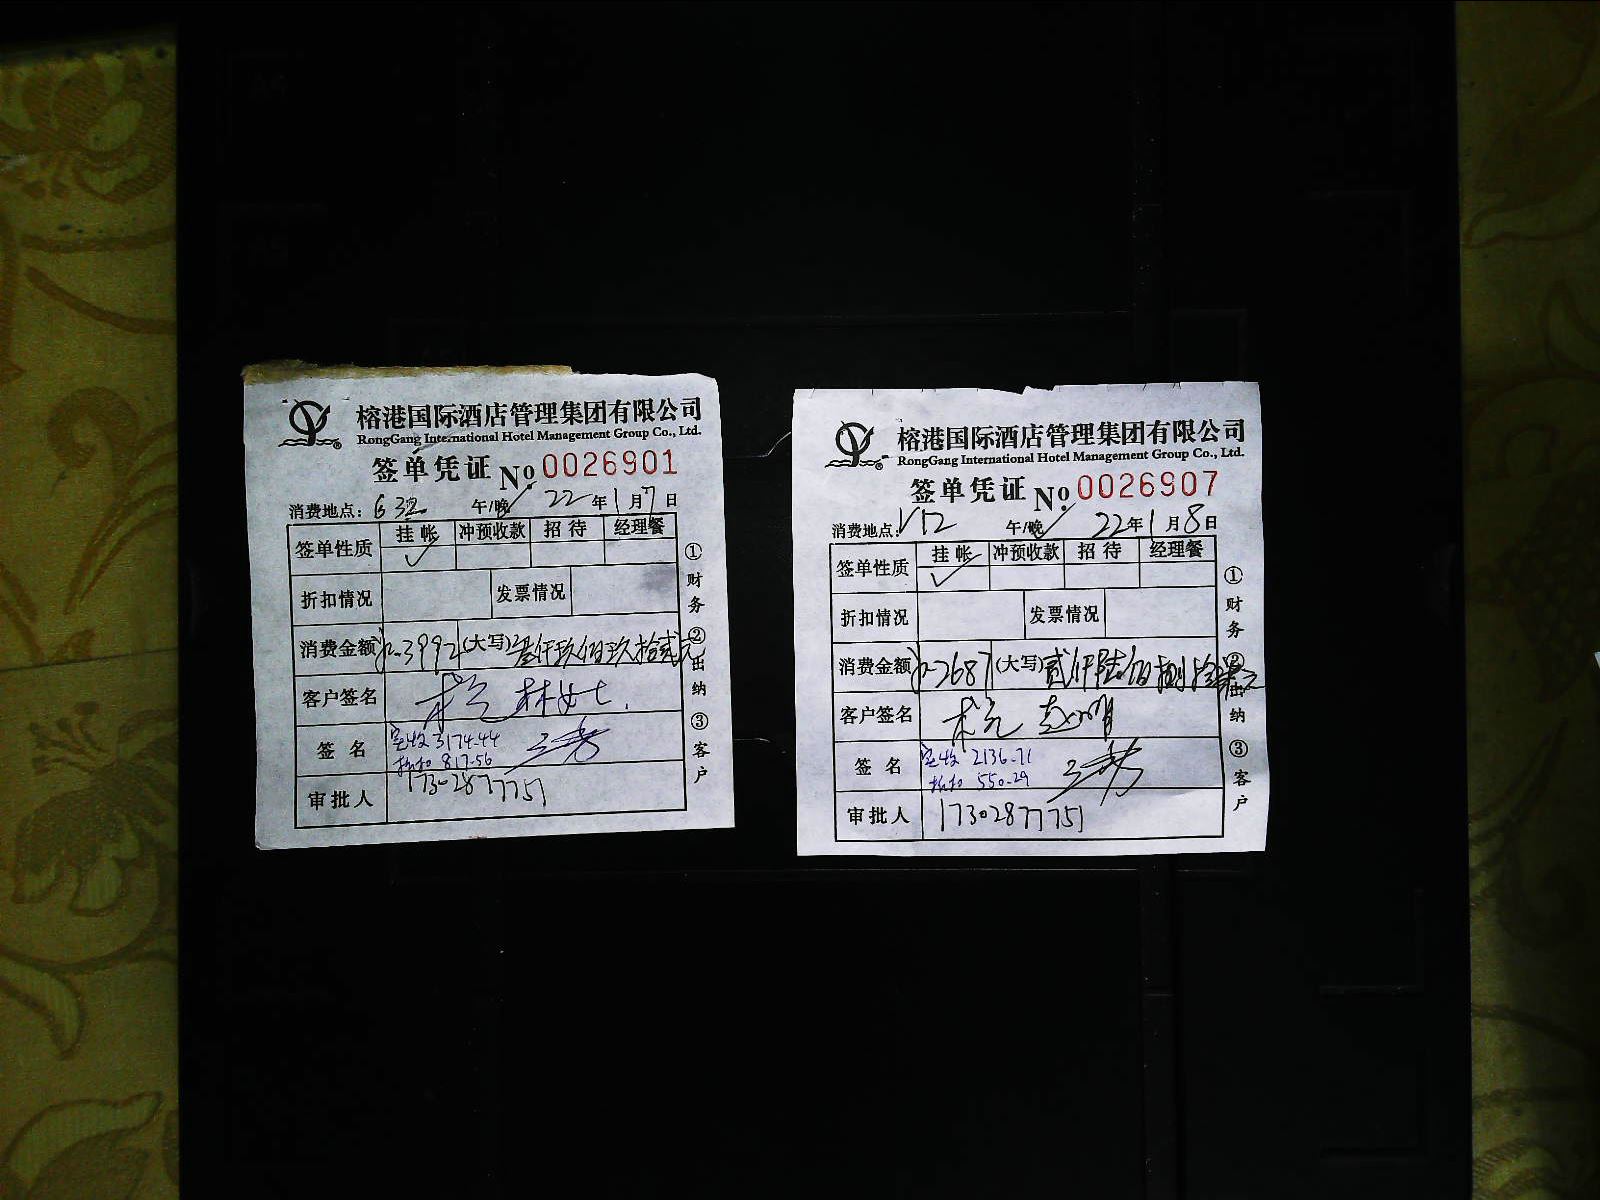 榕港国际酒店管理集团有限公司
RongGang International Hotel Management Group Co., Ltd.
签单凭证 No. 0026901
消费地点: G32 午/晚 22年1月7日
签单性质 挂帐 冲预收款 招待 经理餐
折扣情况 发票情况
消费金额 3992 (大写) 叁仟玖佰玖拾贰元
客户签名 林女士
签名 实收 3174.44
折扣 817.56
审批人 17302877751
①财务 ②出纳 ③客户
榕港国际酒店管理集团有限公司
RongGang International Hotel Management Group Co., Ltd.
签单凭证 No. 0026907
消费地点: V12 午/晚 22年1月8日
签单性质 挂帐 冲预收款 招待 经理餐
折扣情况 发票情况
消费金额 2687 (大写) 贰仟陆佰捌拾柒元
客户签名 赵
签名 实收 2136.71
折扣 550.29
审批人 17302877751
①财务 ②出纳 ③客户